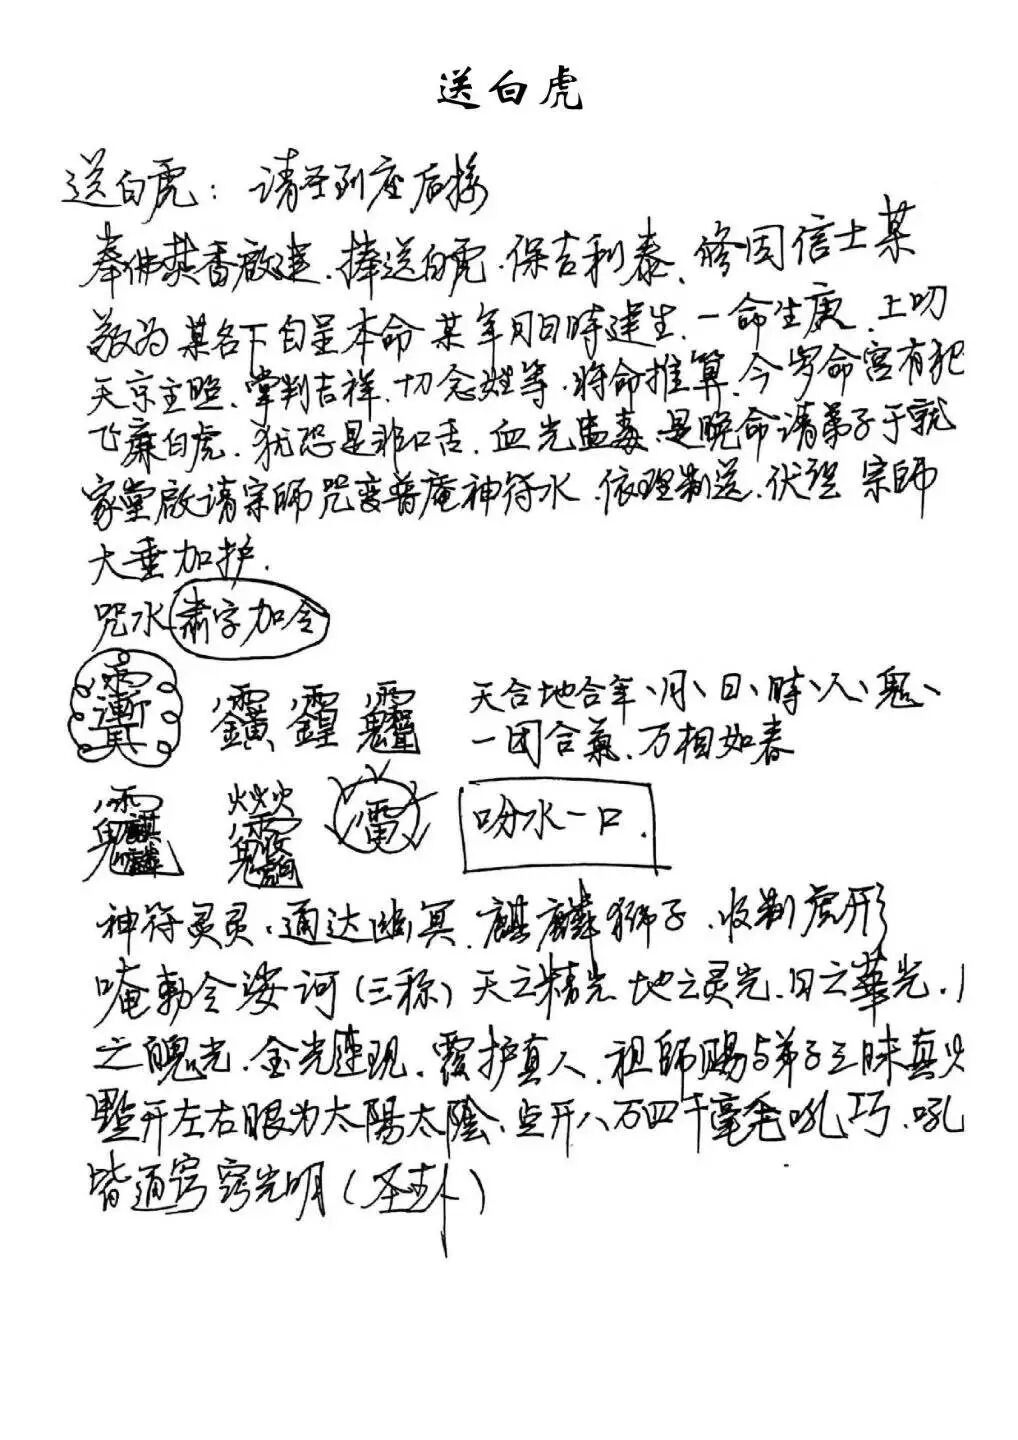 送白虎
送白虎：请圣到座后接
奉佛焚香啟建、捧送白虎、保吉利泰、修因信士某
敬为某名下自呈本命某年月日時建生、一命生庚、上叨
天京主照、掌判吉祥、切念姓等、将命推算、今岁命宫有犯
飞廉白虎、犹恐是非口舌、血光蛊毒、是晚命请弟子于就
家堂啟请宗師咒变普庵神符水、依理制送、伏望宗師
大垂加护.
咒水 肃字加令
天合地合年、月、日、時、人、鬼、
一团合氣、万相如春
吩水一口.
神符灵灵、通达幽冥、麒麟狮子、收制虎形
唵勅令娑诃（三称）天之精光 地之灵光、日之華光、
之魄光、金光速现、覆护真人、祖師賜与弟子三昧真火
點开左右眼为太陽太陰、点开八万四千毫毛吼巧、吼
皆通窍窍光明（圣卦）